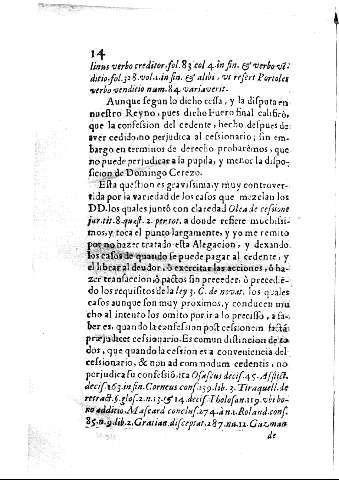 14
linus verbo creditor. fol. 83 col 4. in fin. & verbo vē-
ditio. fol. 328. vol. 1. in fin. & alibi, vt refert Portoles
verbo venditio num. 84. variaverit.
Aunque segun lo dicho cessa, y la disputa en
nuestro Reyno, pues dicho Fuero final califico,
que la confession del cedente, hecho despues de
aver cedido, no perjudica al cessionario; sin em-
bargo en terminos de derecho probarèmos, que
no puede perjudicar a la pupila, y menos la dispo-
sicion de Domingo Cerezo.
Esta question es gravissima, y muy controver-
tida por la variedad de los casos que mezclan los
DD. los quales juntò con claredad Olea de cessione
jur. tit. 8. quæst. 2. per tot. a donde refiere muchissi-
mos, y toca el punto largamente, y yo me remito
por no hazer tratado esta Alegacion, y dexando
los casos de quando se puede pagar al cedente, y
el librar al deudor, ò exercitar las acciones, ò ha-
zer transaccion, ò pactos sin preceder, ò precedië-
do los requisitos de la ley 3. C. de novat. los quales
casos aunque son muy proximos, y conducen mu
cho al intento los omito por ir a lo precisso, a sa-
ber es, quando la confession post cessionem facta
prejudicet cessionario. Es comun distincion de to
dos, que quando la cession es a conveniencia del
cessionario, & non ad commodum cedentis, no
perjudica su confessiō, ita Osascus decis. 45. Afflict.
decis. 163. in fin. Corneus cons. 259. lib. 3. Tiraquell. de
retract. §. glos. 2. n. 13. & 14. decis. Tholosan. 119. verbo
no additio. Mascard conclus. 274. à n. 1. Roland. cons.
85. n. 9. lib. 2. Gratian. disceptat. 287. nu. 12. Guzman
de